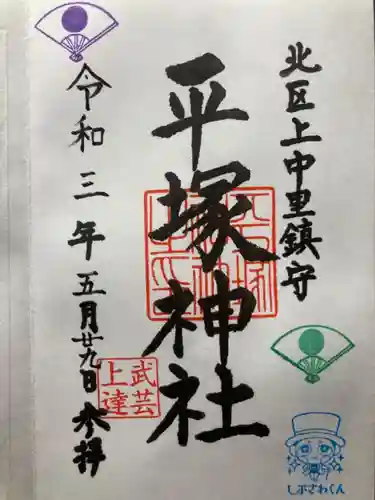 北区上中里鎮守
平塚神社
令和三年五月廿九日参拝
武芸
上達
しぶさわくん